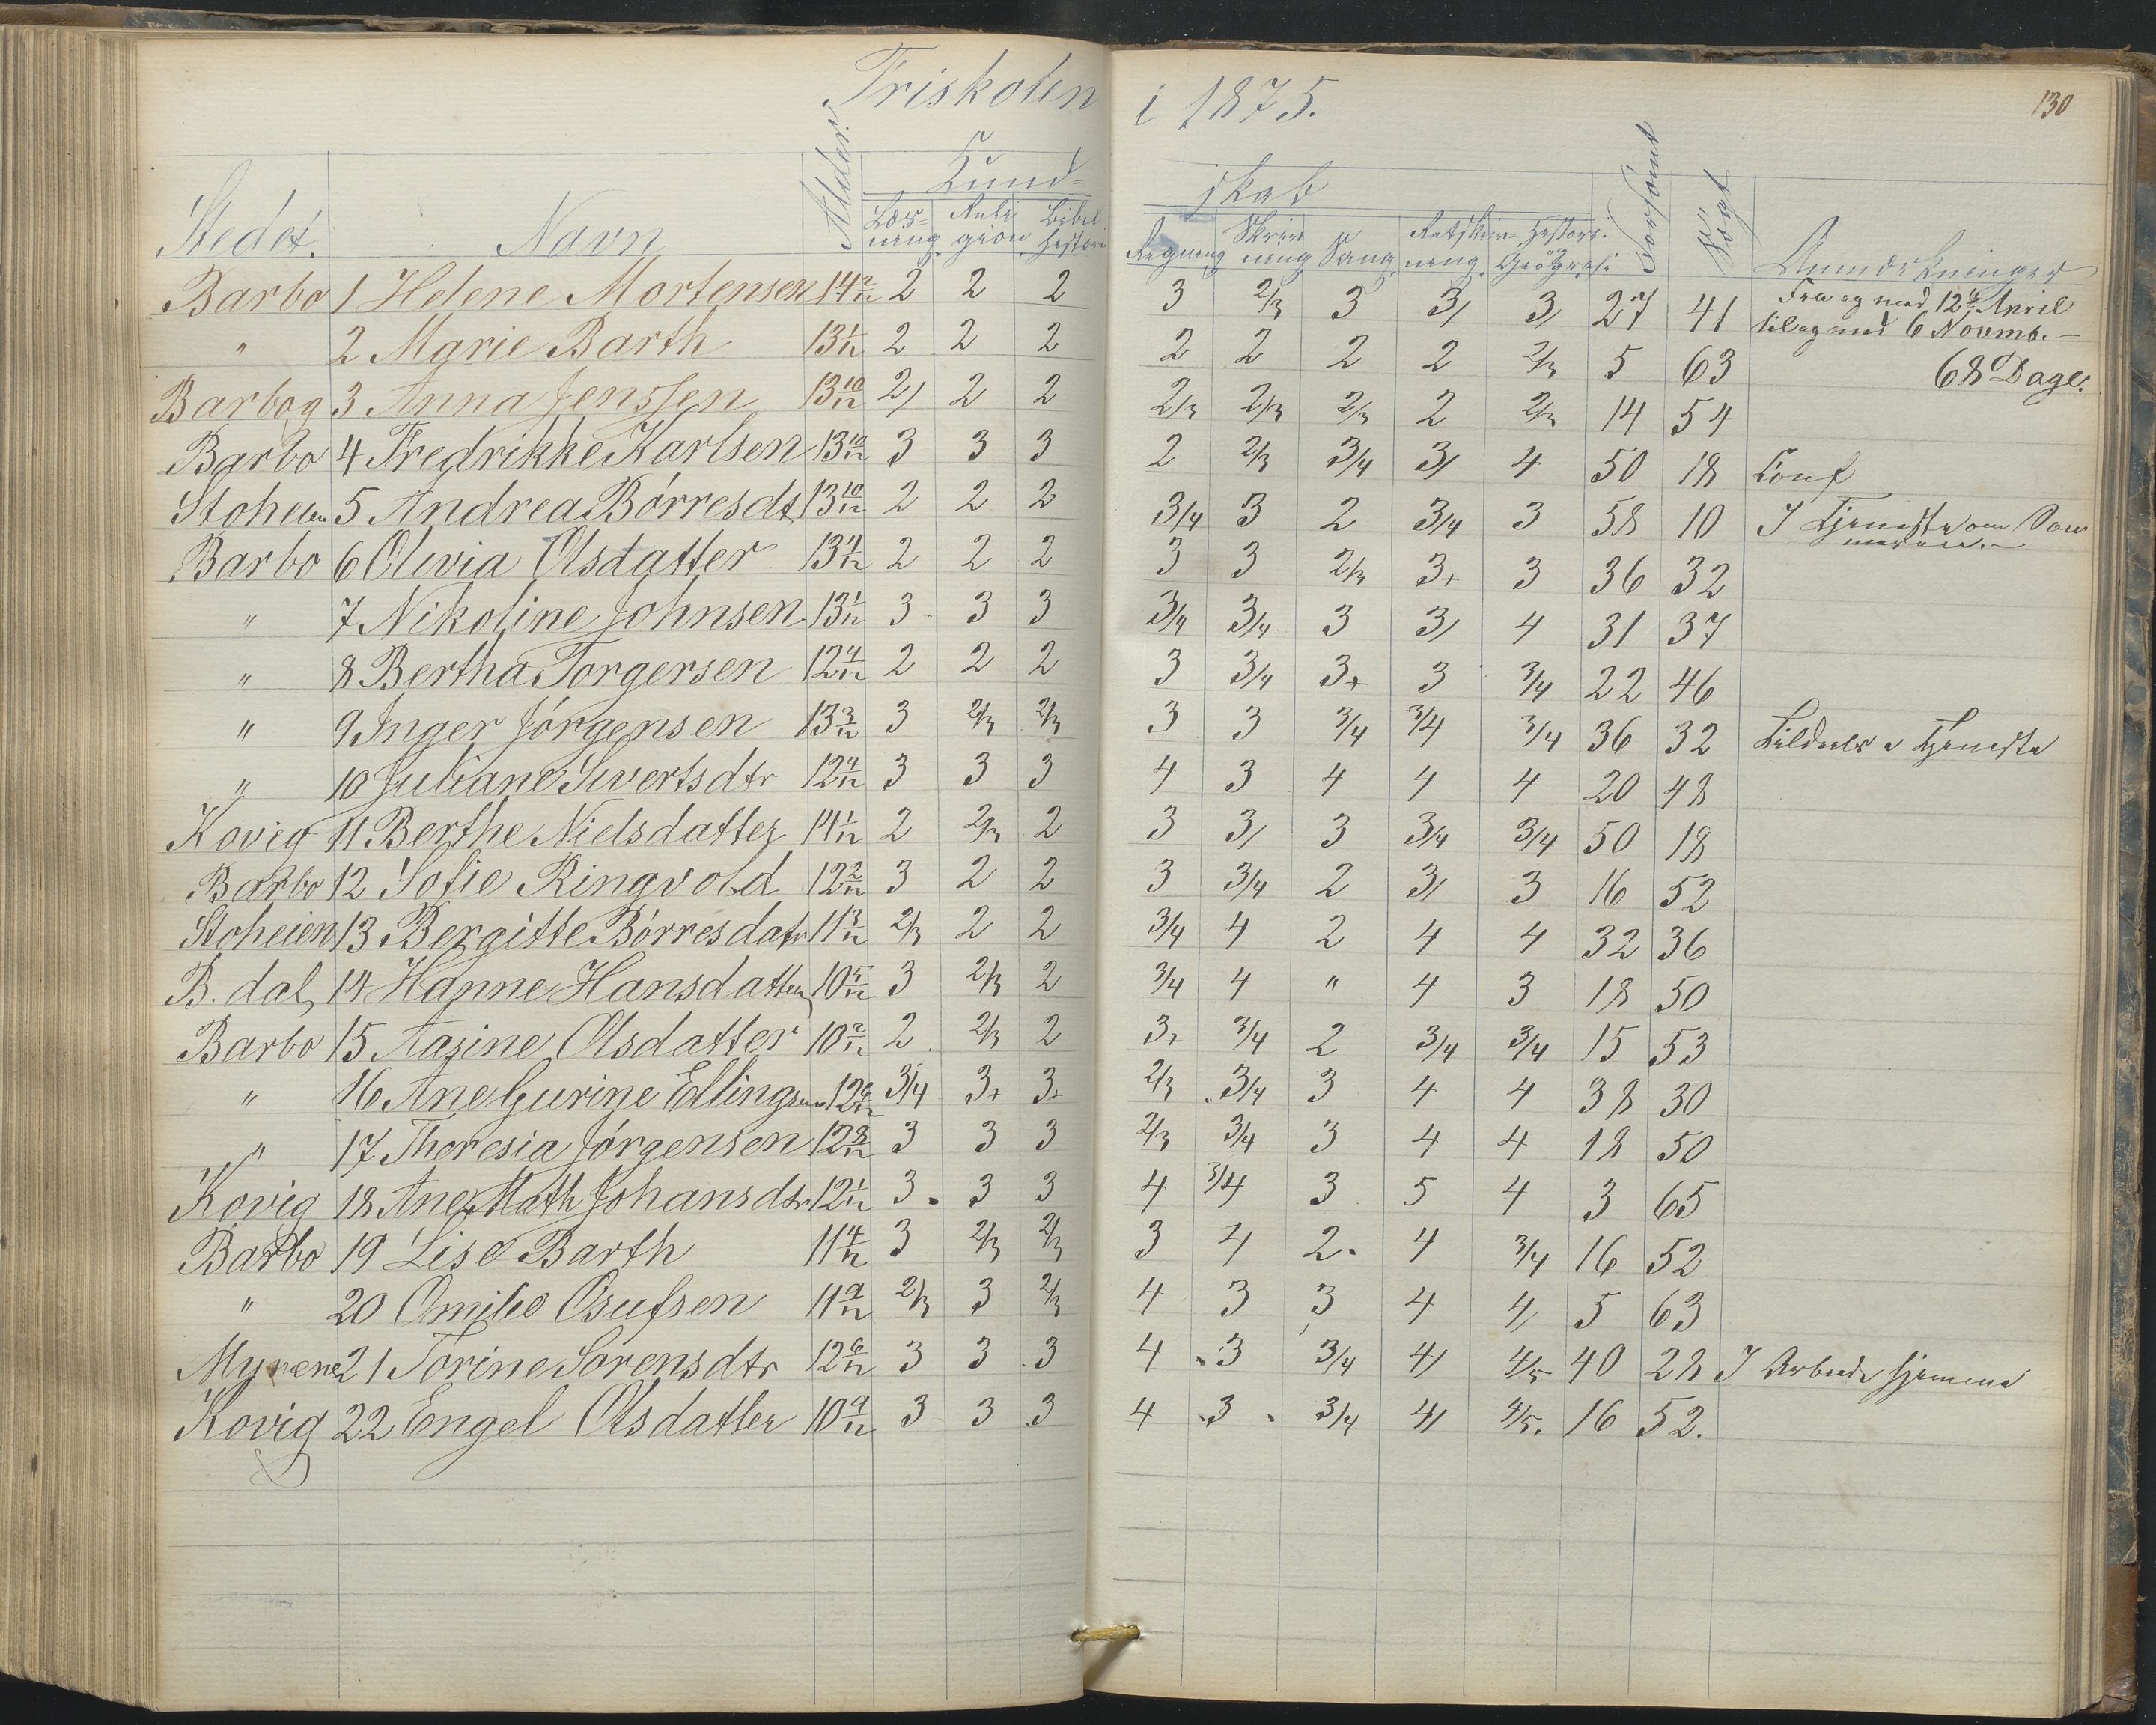 Friskolen i 1875. 130
Stedet. Navn Alder. Kund= skab Forsømt Søgt Anmærkninger
Læs= ning Reli gion Bibel historie Regning Skriv ning Sang Retskriv= ning Histori. og Geografi
Barbo 1 Helene Mortensen 14 2/12 2 2 2 3 2/3 3 3/ 3/ 27 41 Fra og med 12te April
" 2 Marie Barth 13 1/12 2 2 2 2 2 2 2 2/3 5 63 til og med 6 Novmb. —
68 Dage.
Barbog 3 Anna Jenssen 13 10/12 2/ 2 2 2/3 2/3 2/3 2 2/3 14 54
Barbo 4 Fredrikke Karlsen 13 10/12 3 3 3 2 2/3 3/4 3/ 4 50 18 Conf
Stoheien 5 Andrea Börresdt 13 10/12 2 2 2 3/4 3 2 3/4 3 58 10 I Tjeneste om Som
meren. —
Barbo 6 Olivia Olsdatter 13 4/12 2 2 2 3 3 2/3 3+ 3 36 32
" 7 Nikoline Johnsen 13 1/12 3 3 3 3/4 3/4 3 3/ 4 31 37
" 8 Bertha Torgersen 12 4/12 2 2 2 3 3/4 3+ 3 3/4 22 46
" 9 Inger Jörgensen 13 3/12 3 2/3 2/3 3 3 3/4 3/4 3/4 36 32 Tildels i Tjeneste
" 10 Juliane Sivertsdtr 12 4/12 3 3 3 4 3 4 4 4 20 48
Kovig 11 Berthe Nielsdatter 14 1/12 2 2/3 2 3 3/ 3 3/4 3/4 50 18
Barbo 12 Sofie Ringvold 12 2/12 3 2 2 3 3/4 2 3/ 3 16 52
Stoheien 13 Bergitte Börresdatr 11 3/12 2/3 2 2 3/4 4 2 4 4 32 36
B. dal, 14 Hanne Hansdatter 10 5/12 3 2/3 2 3/4 4 " 4 3 18 50
Barbo 15 Aasine Olsdatter 10 2/12 2 2/3 2 3+ 3/4 2 3/4 3/4 15 53
" 16 Ane Gurine Ellingsen 12 6/12 3/4 3+ 3+ 2/3 3/4 3 4 4 38 30
" 17 Theresia Jörgensen 12 8/12 3 3 3 2/3 3/4 3 4 4 18 50
Kovig 18 Ane Math Johansdtr 12 1/12 3 3 3 4 3/4 3 5 4 3 65
Barbo 19 Lise Barth 11 4/12 3 2/3 2/3 3 4 2 4 3/4 16 52
" 20 Omilie Osufsen 11 9/12 2/3 3 2/3 4 3 3 4 4/ 5 63
Myrene 21 Torine Sorensdtr 12 6/12 3 3 3 4 3 3/4 4/ 4/5 40 28 I Arbeide hjemme
Kovig 22 Engel Olsdatter 10 9/12 3 3 3 4 3 3/4 4/ 4/5. 16 52.